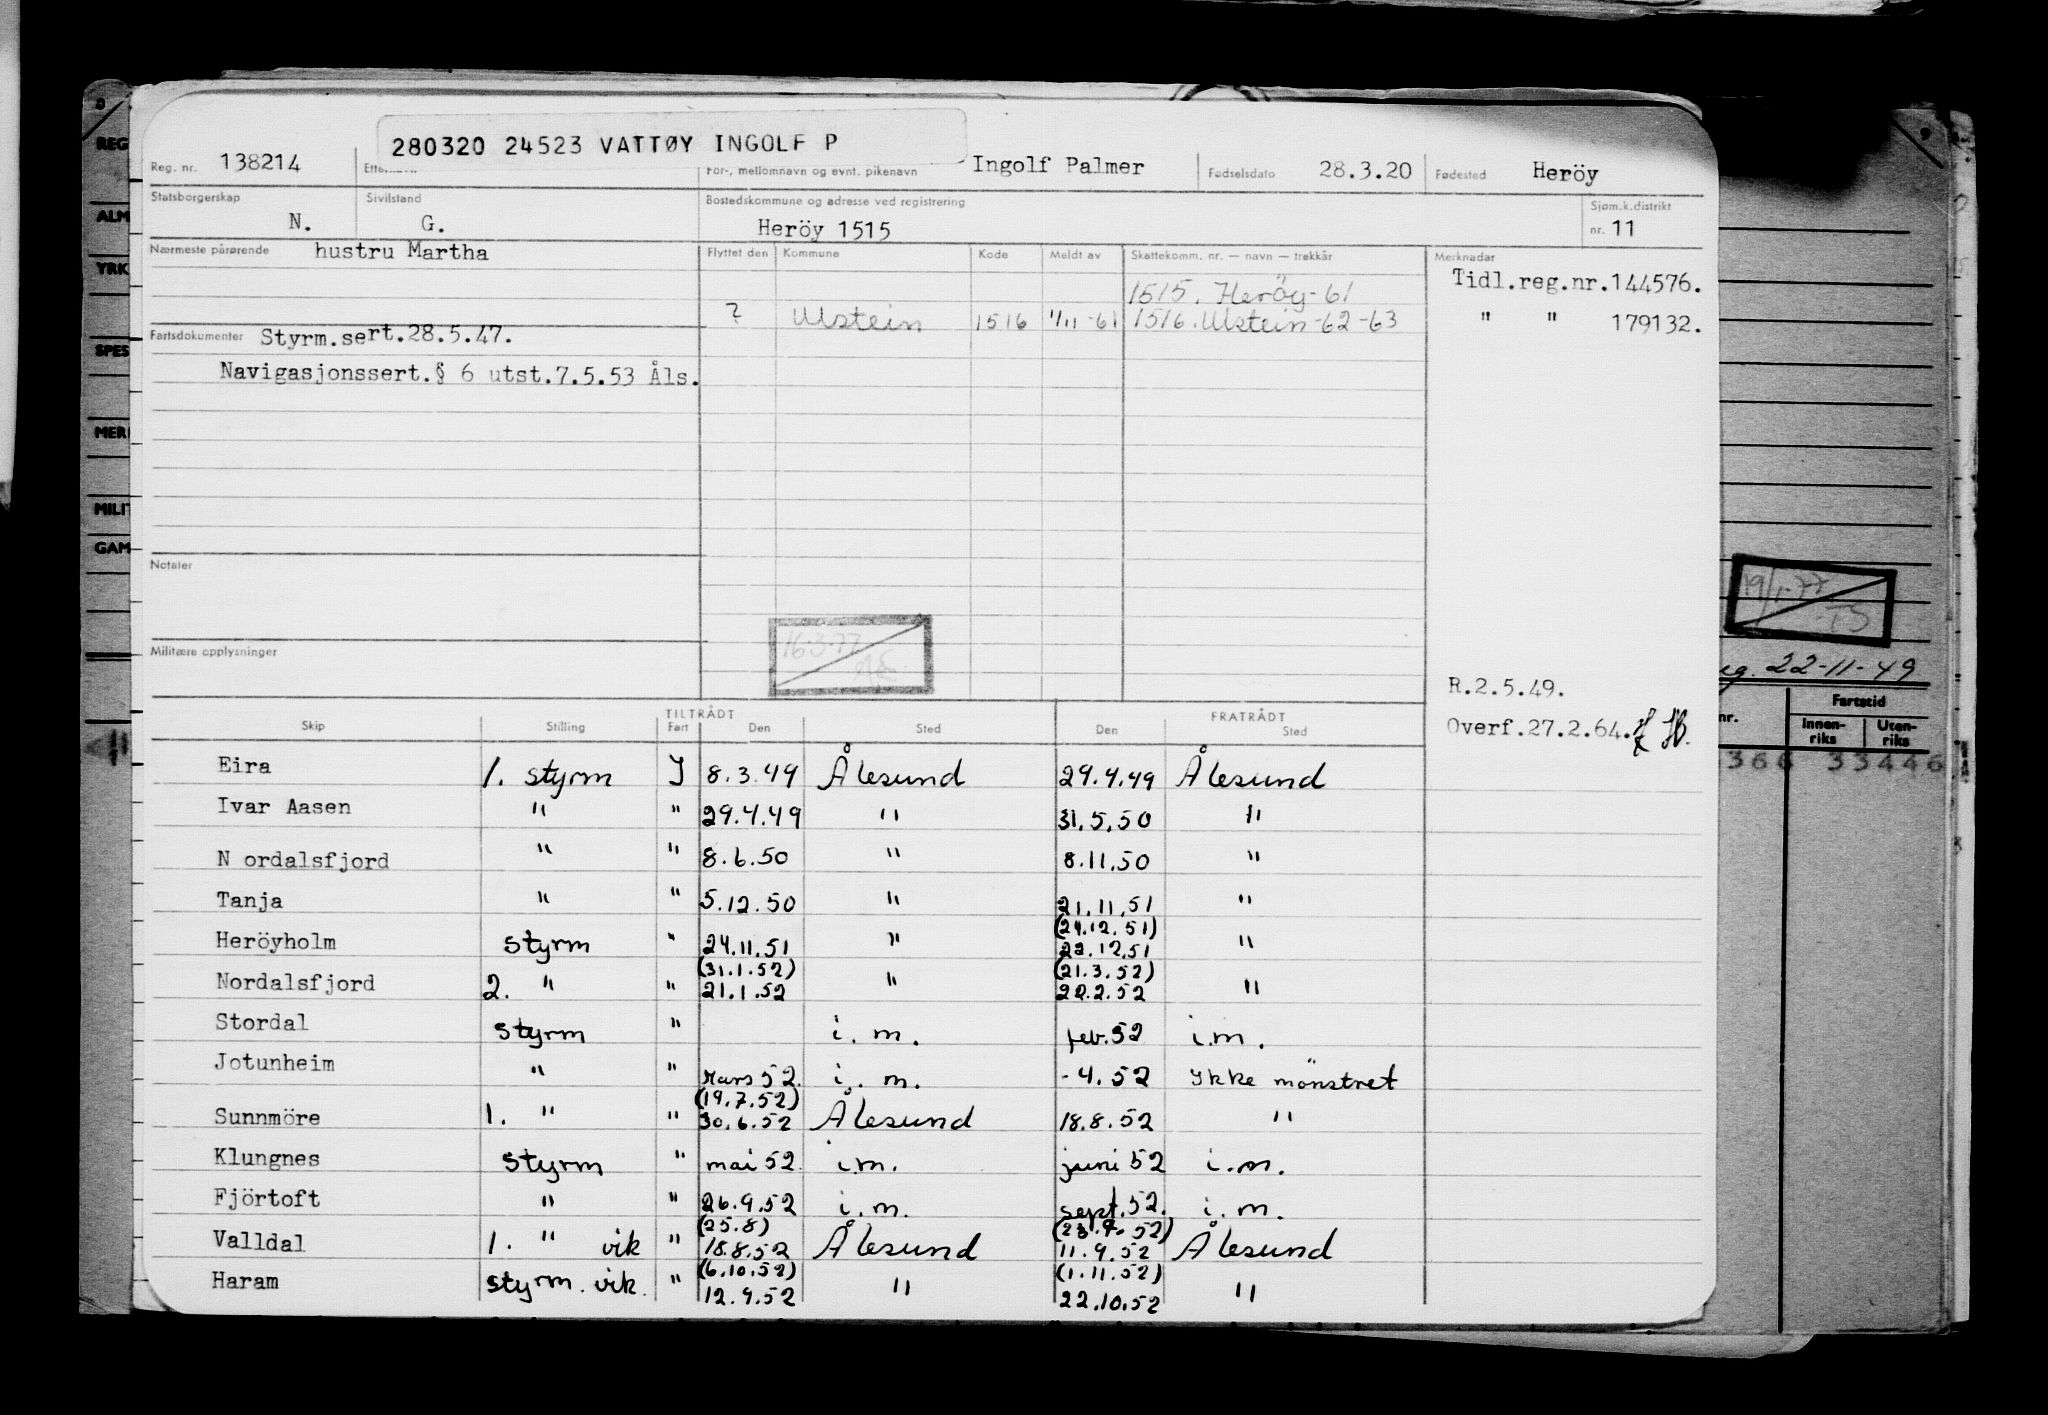 280320 24523 VATTØY INGOLF P
Reg. nr. 138214 For-, mellomnavn og evnt. pikenavn Ingolf Palmer Fødselsdato 28.3.20 Fødested Heröy
Statsborgerskap N. Sivilstand G. Bostedskommune og adresse ved registrering Heröy 1515 Sjøm.k.distrikt nr. 11
Nærmeste pårørende hustru Martha Flyttet den Kommune Kode Meldt av Skattekomm. nr. — navn — trekkår Merknader
1515. Heröy-61 Tidl.reg.nr.144576.
? Ulstein 1516 1/11-61 1516. Ulstein-62-63 " " 179132.
Fartsdokumenter Styrm.sert.28.5.47.
Navigasjonssert.§ 6 utst.7.5.53 Åls.
Notater
16.3.77
Militære opplysninger
R.2.5.49.
Overf.27.2.64.
TILTRÅDT FRATRÅDT
Skip Stilling Fart Den Sted Den Sted
Eira 1. styrm I 8.3.49 Ålesund 29.4.49 Ålesund
Ivar Aasen " " 29.4.49 " 31.5.50 "
N ordalsfjord " " 8.6.50 " 8.11.50 "
Tanja " " 5.12.50 " 21.11.51 "
(24.12.51)
Heröyholm styrm " 24.11.51 " 22.12.51 "
(31.1.52) (21.3.52)
Nordalsfjord 2. " " 21.1.52 " 22.2.52 "
Stordal styrm " i.m. feb.52 i.m.
Jotunheim " " mars 52. i.m. -4.52 Ikke mönstret
(19.7.52)
Sunnmöre 1. " " 30.6.52 Ålesund 18.8.52 "
Klungnes styrm " mai 52. i.m. juni 52 i.m.
Fjörtoft " " 26.9.52 i.m. sept.52. i.m.
(25.8) (23.9.52)
Valldal 1. " vik " 18.8.52 Ålesund 11.9.52 Ålesund
(6.10.52) (1.11.52)
Haram styrm. vik. " 12.9.52 " 22.10.52 "
REG
ALM
YRK
SPES
MER
MILIT
GAM
19/1-77
TS
22-11-49
nr. Fartstid
Innen-riks Uten-riks
366 33446